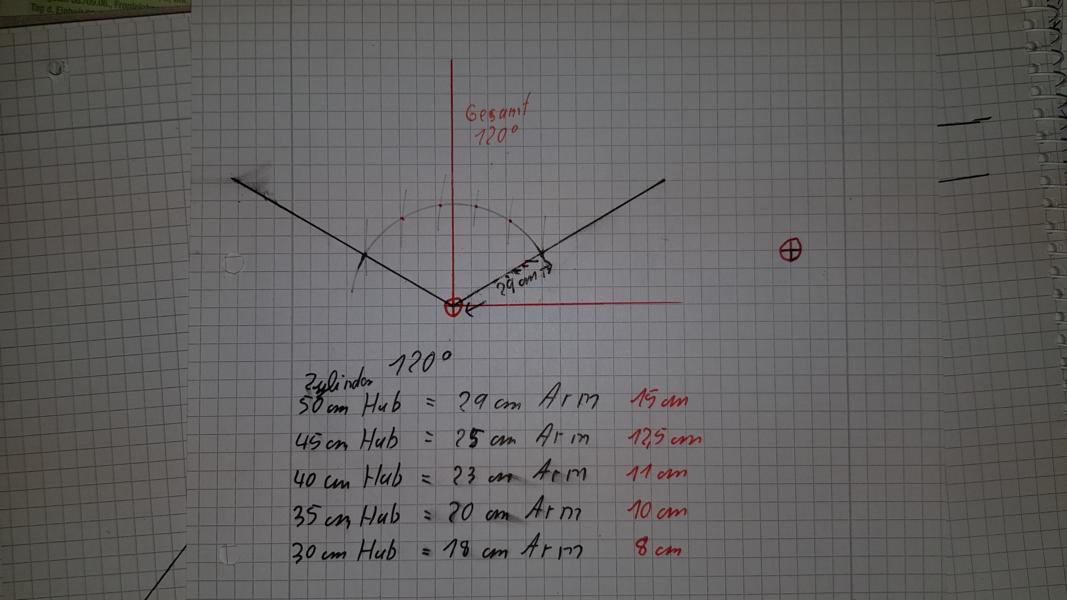 Tag d. Einheit
Gesamt
120°
29 cm
120°
Zylinder
50 cm Hub = 29 cm Arm 15 cm
45 cm Hub = 25 cm Arm 12,5 cm
40 cm Hub = 23 cm Arm 11 cm
35 cm Hub = 20 cm Arm 10 cm
30 cm Hub = 18 cm Arm 8 cm